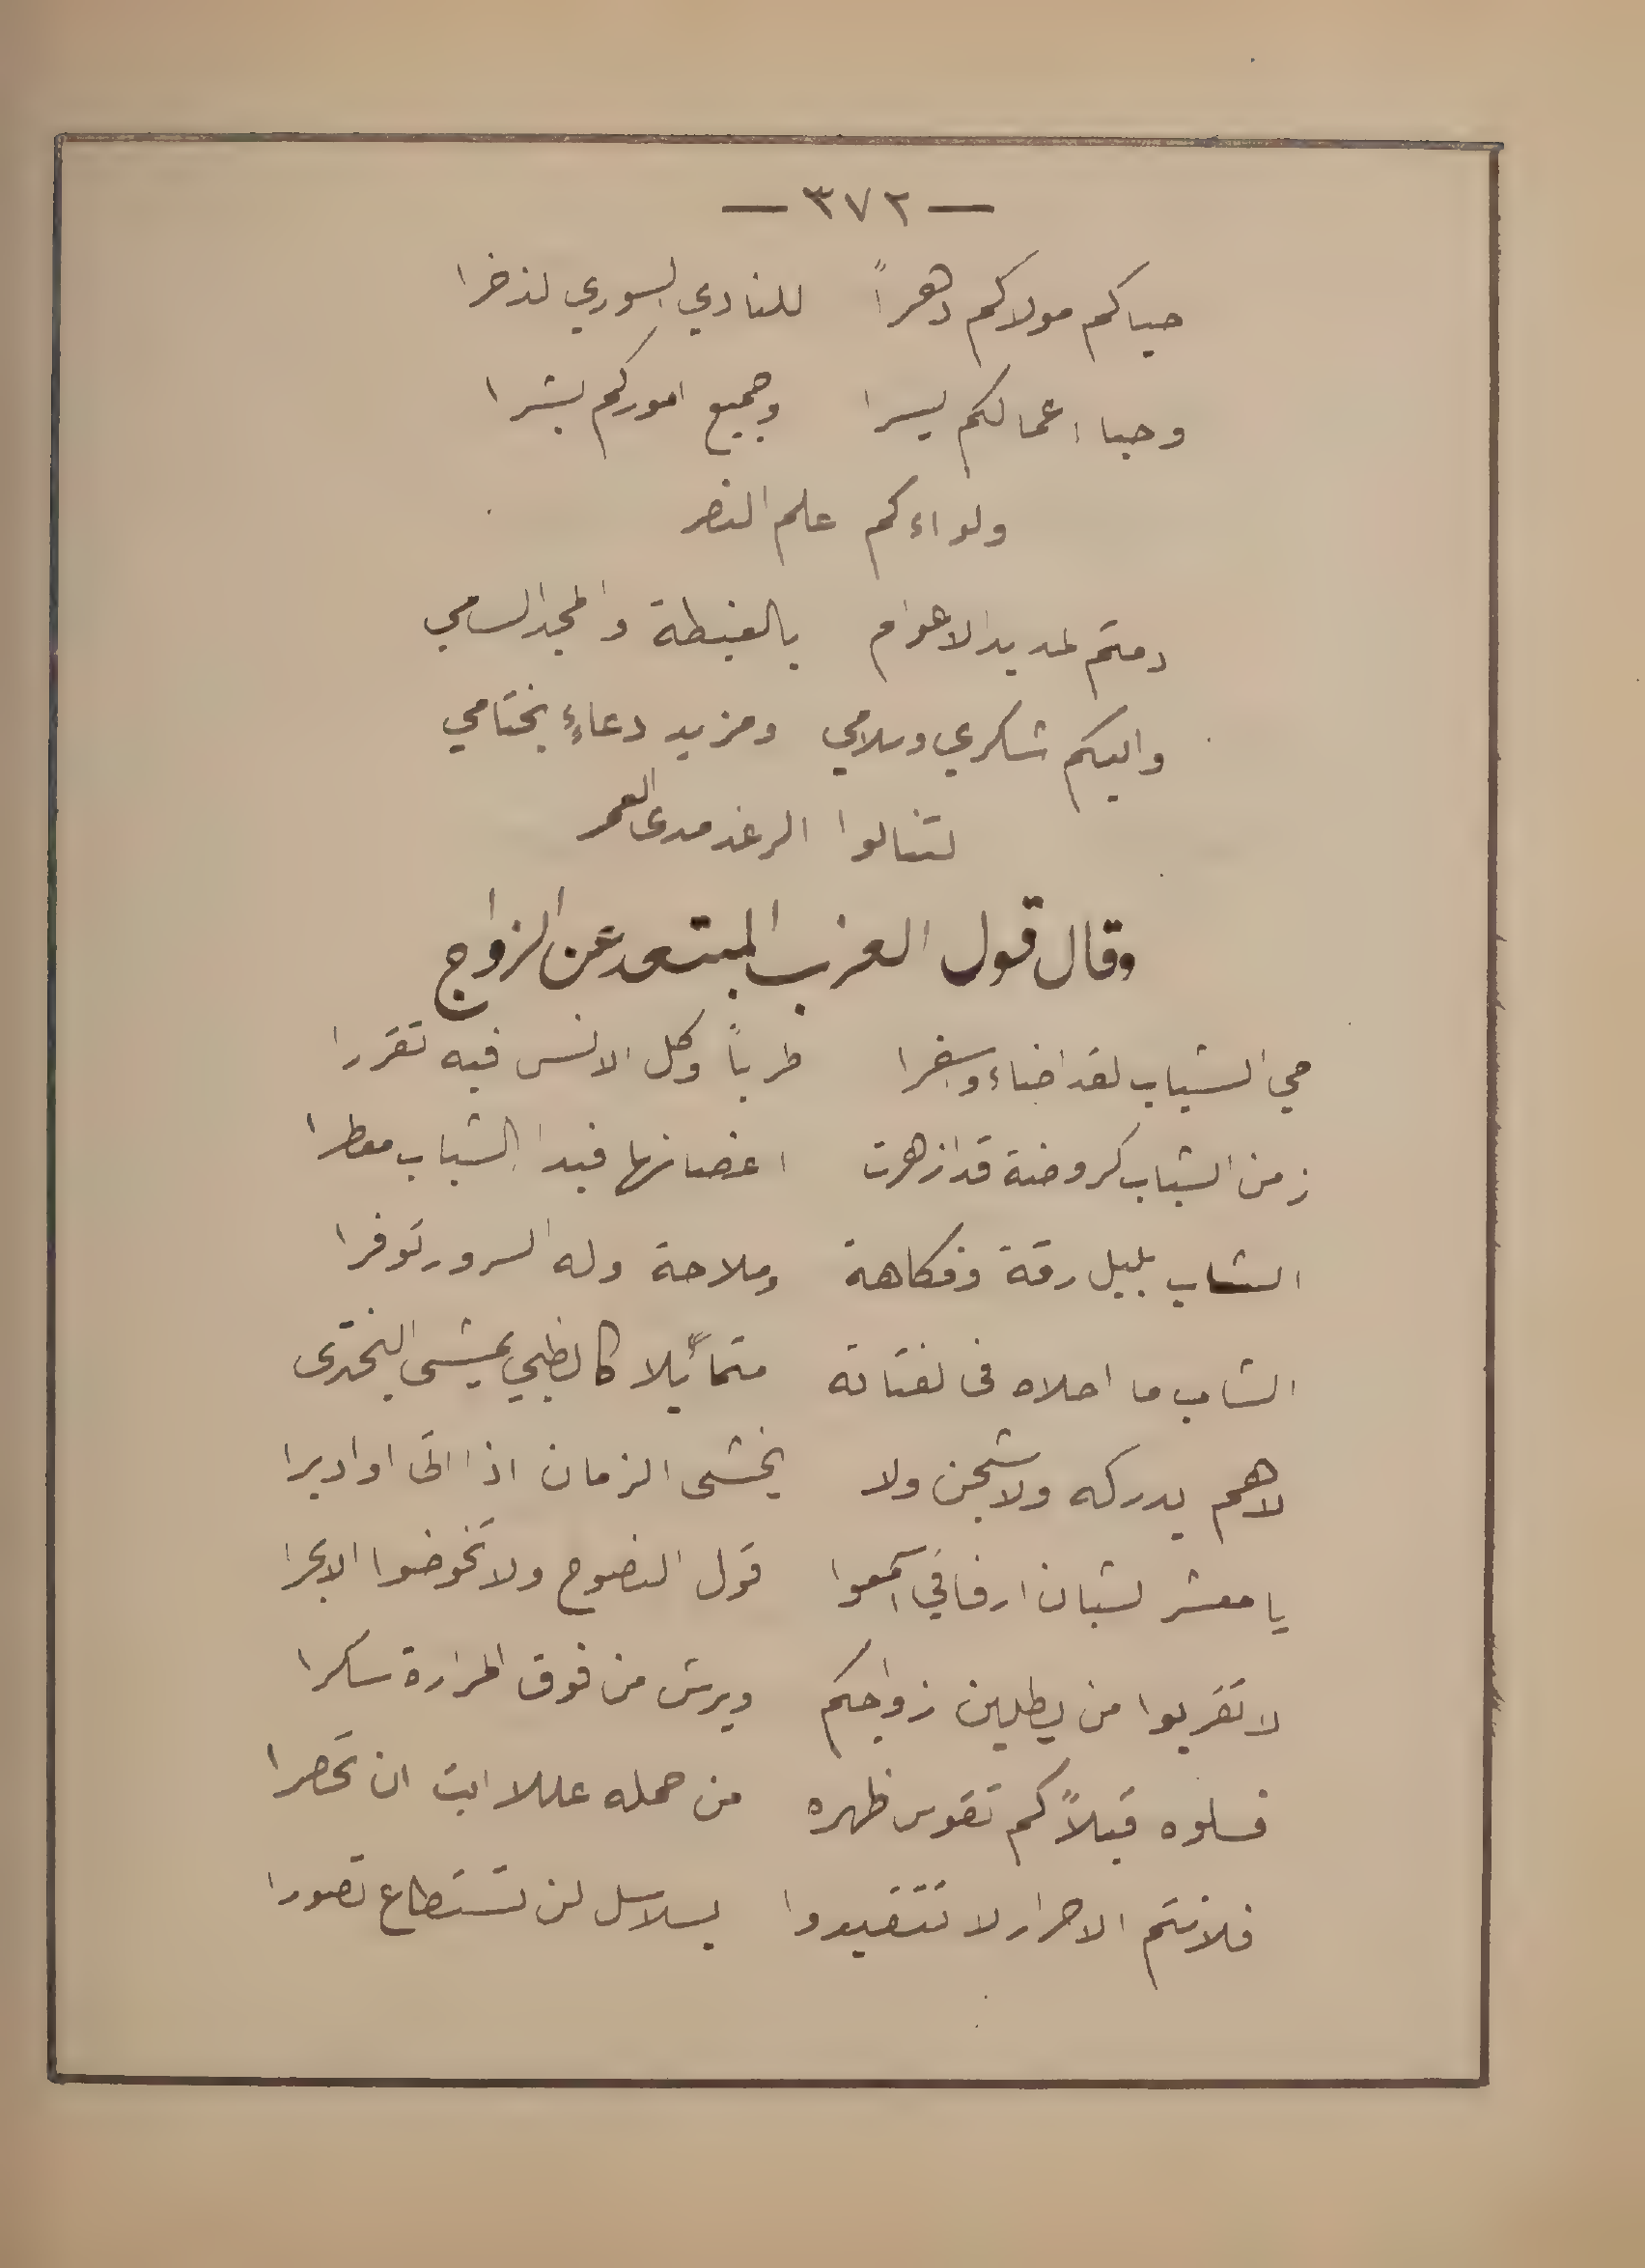 — ٣٧٢ —
حياكم مولاكم دهراً للنادي السوري لذخرا
وحبا اعمالكم يسرا وجميع اموركم بشرا
ولواءكم علم النصر
دمتم لمديد الاعوام بالغبطة والمجد السامي
واليكم شكري وسلامي ومزيد دعاءٍ بختامي
لتنالوا الرغد مدى العمر
وقال قول العزب المبتعد عن الزواج
حي الشباب لقد اضاء واسفرا طرباً وكل الانس فيه تقررا
زمن الشباب كروضة قد ازهرت اغصانها فبدا الشباب معطرا
الشاب بلبل رقة وفكاهة وملاحة وله السرور توفرا
الشاب ما احلاه في لفتاته متمائيلا كالظبي يمشي البختري
لا هم يدركه ولا شجن ولا يخشى الزمان اذا اتى او ادبرا
يا معشر لشبان ارفاقي اسمعوا قول النصوح ولا تخوضوا الابحرا
لا تقربوا من يطلبن زواجكم ويرش من فوق المرارة سكرا
فسلوه قبلاً كم تقوس ظهره من حمله عللا ابت ان تحصرا
فلانتم الاحرار لا تتقيدوا بسلاسل لن تستطاع تصورا